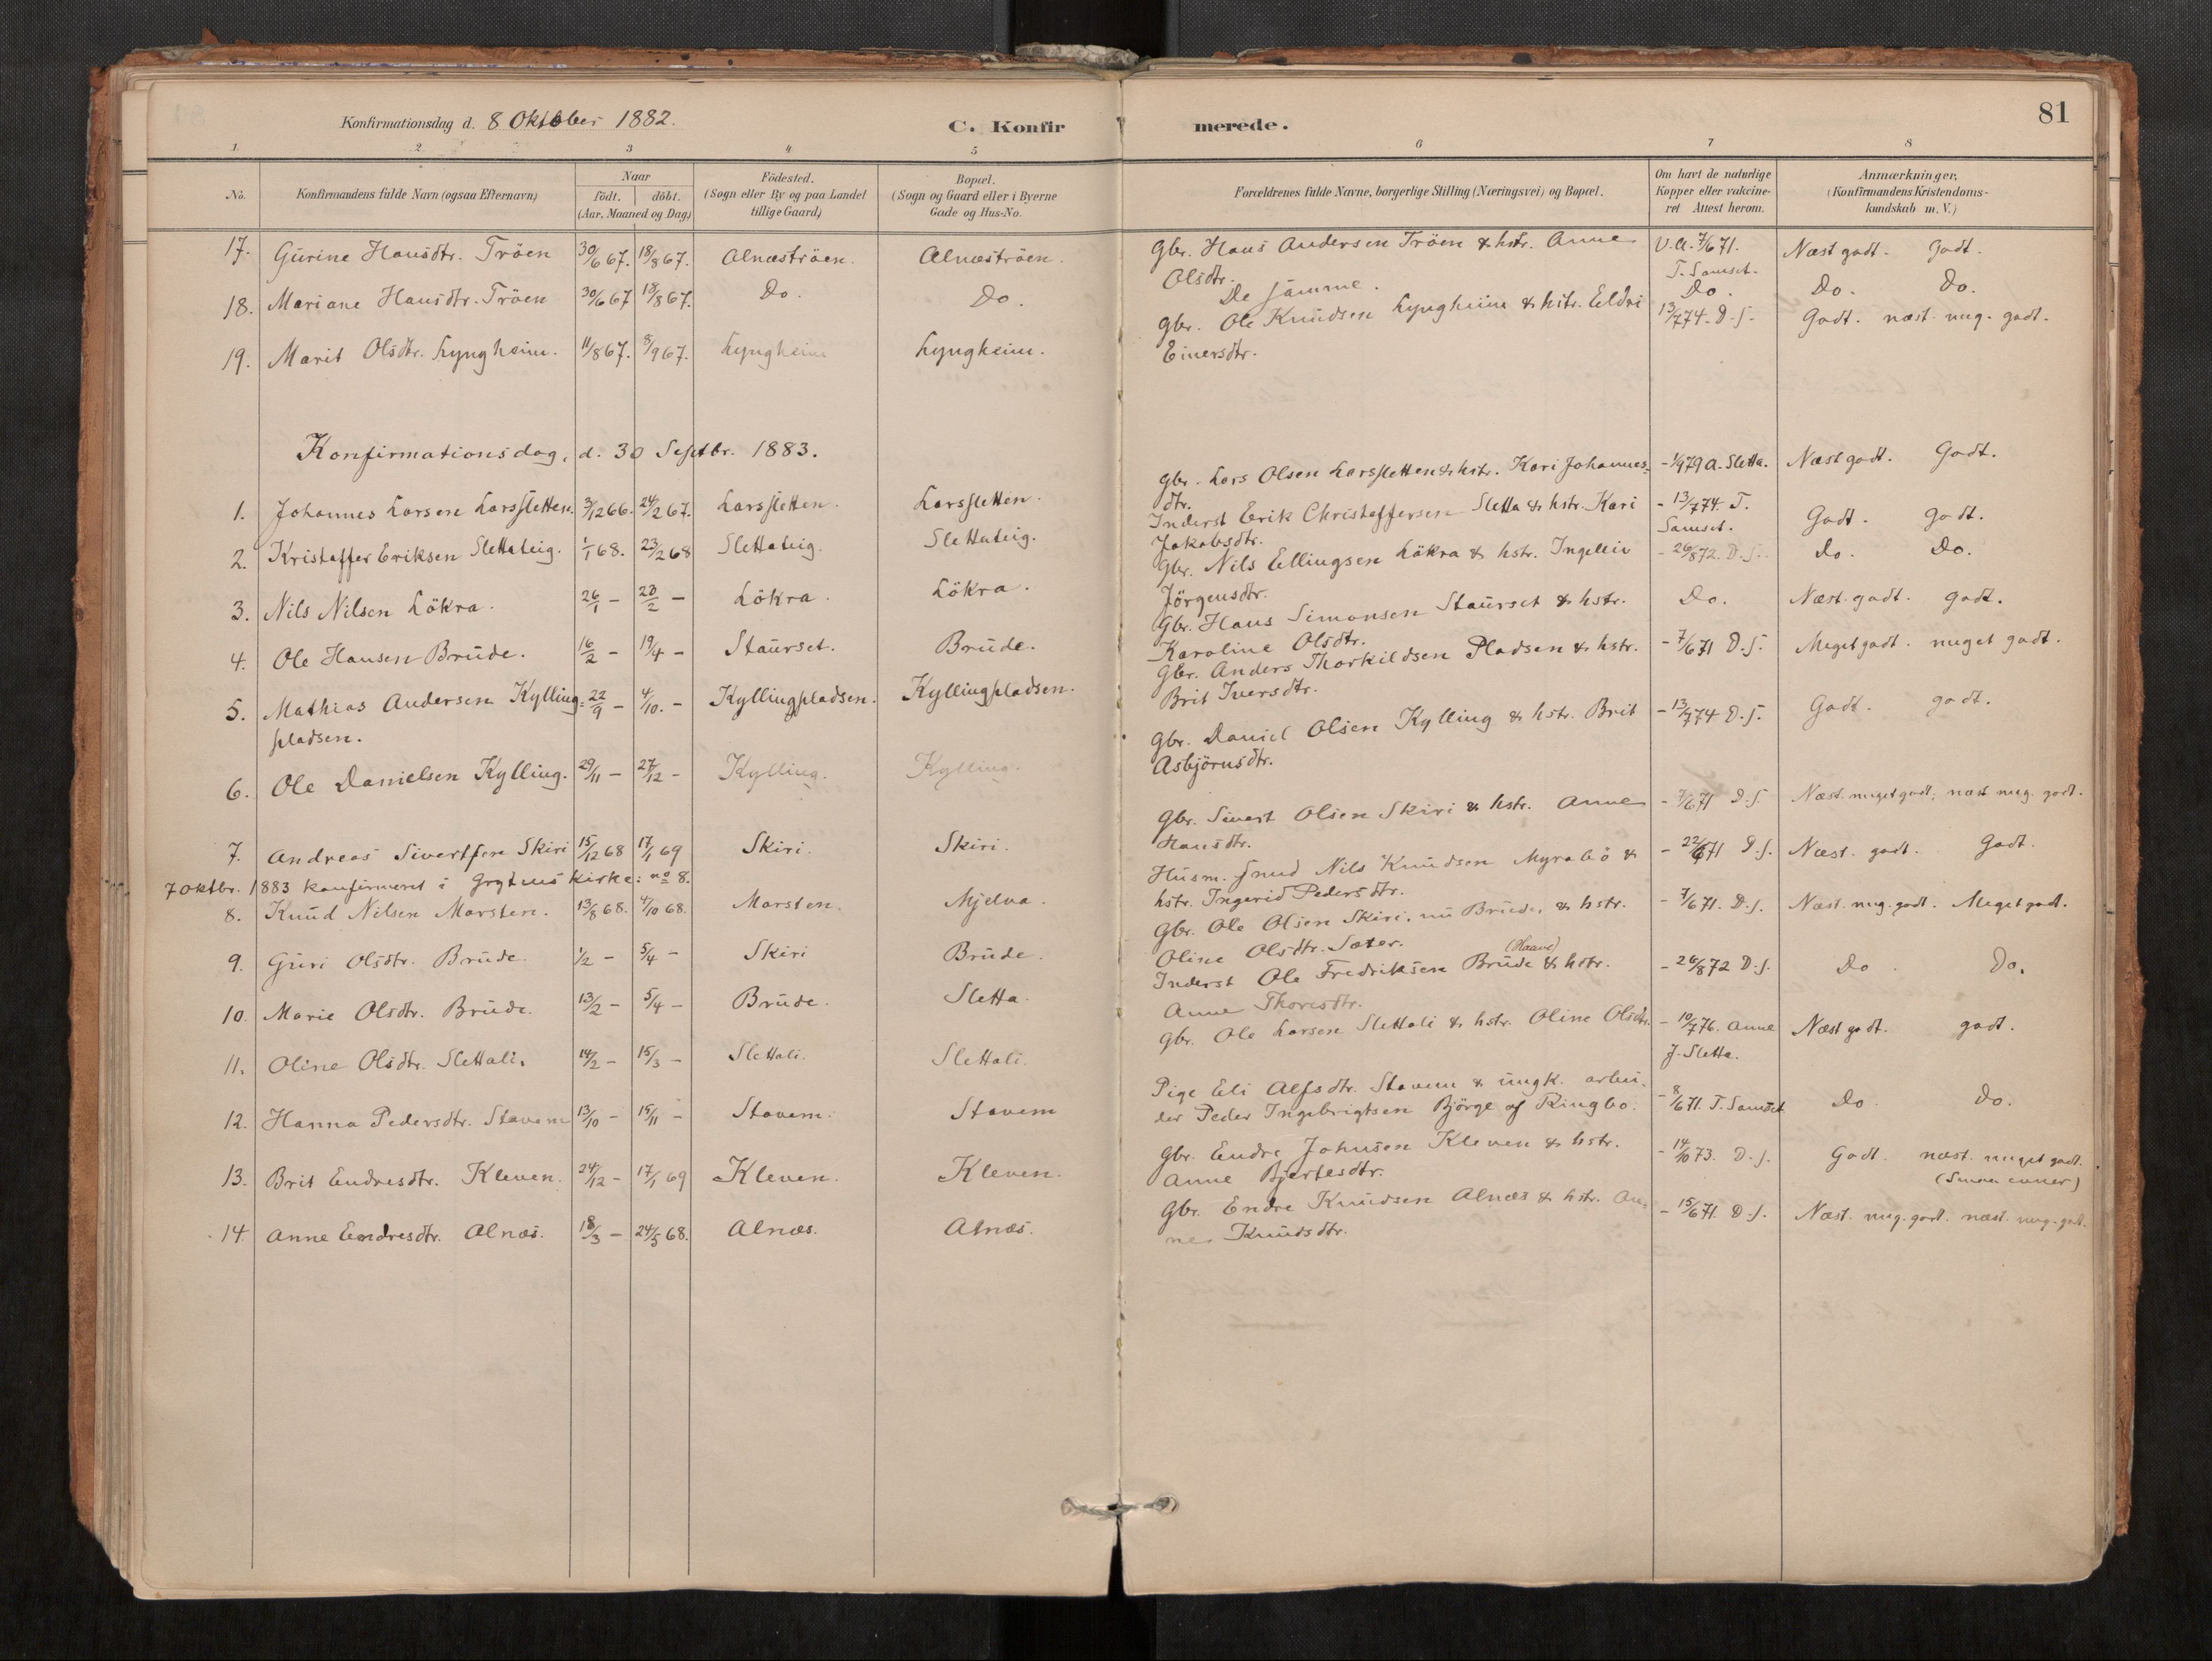 Konfirmationsdag d. 8 Oktober 1882.
C. Konfir
merede.
81
1. 2. 3 4 5 6 7 8
No.
Konfirmandens fulde Navn (ogsaa Efternavn)
Naar
födt. döbt.
(Aar, Maaned og Dag)
Födested.
(Sogn eller By og paa Landet
tillige Gaard)
Bopæl.
(Sogn og Gaard eller i Byerne
Gade og Hus-No.
Forældrenes fulde Navne, borgerlige Stilling (Næringsvei) og Bopæl.
Om havt de naturlige
Kopper eller vakcine-
ret Attest herom.
Anmærkninger.
(Konfirmandens Kristendoms-
kundskab m. V.)
17. Gurine Hansdtr. Tröen 30/6 67. 18/8 67. Alnæströen. Alnæströen. Gbr. Hans Andersen Tröen & hstr. Anne V.A. 7/6 71. Næst godt. Godt.
Olsdtr. T. Samset.
18. Mariane Hansdtr. Tröen 30/6 67 18/8 67. Do. Do. De samme. Do. Do. Do.
19. Marit Olsdtr. Lyngheim. 11/8 67. 8/9 67. Lyngheim Lyngheim. Gbr. Ole Knudsen Lyngheim & hstr. Eldri 13/7 74. D.s. Godt. næst. mug. godt.
Einersdtr.
Konfirmationsdag, d. 30 Septbr. 1883.
1. Johannes Larsen Larssletten. 3/12 66. 24/2 67. Larssletten. Larssletten. Gbr. Lars Olsen Larssletten & hstr. Kari Johannes- - 1/9 79 A. Sletta. Næst godt. Godt.
dtr.
2. Kristoffer Eriksen Slettateig. 1/1 68. 23/2 68 Slettateig. Slettateig. Inderst Erik Christoffersen Sletta & hstr. Kari - 13/7 74. T. Godt. godt.
Jakobsdtr. Samset.
3. Nils Nilsen Lökra. 26/1 - 23/2 - Lökra. Lökra. Gbr. Nils Ellingsen Lökra & hstr. Ingeliv - 26/8 72. D.s. Do. Do.
Jörgensdtr.
4. Ole Hansen Brude. 16/2 - 19/4 - Staurset. Brude. Gbr. Hans Simonsen Staurset & hstr. Do. Næst. godt. godt.
Karoline Olsdtr.
5. Mathias Andersen Kylling- 22/9 - 4/10. - Kyllingpladsen. Kyllingpladsen. Gbr. Anders Thorkildsen Pladsen & hstr. - 7/6 71 D.s. Meget godt. meget godt.
pladsen. Brit Iversdtr.
6. Ole Danielsen Kylling. 29/11 - 27/12 - Kylling. Kylling. Gbr. Daniel Olsen Kylling & hstr. Brit - 13/7 74 D.s. Godt. godt.
Asbjörnsdtr.
7. Andreas Sivertsen Skiri 15/12 68 17/1 69 Skiri. Skiri. Gbr. Sivert Olsen Skiri & hstr. Anne - 7/6 71 D.s. Næst. meget godt. næst mug. godt.
Hansdtr.
7 Oktbr. 1883 konfirmeret i Grytens Kirke: no 8.
8. Knud Nilsen Marsten. 13/8 68. 4/10 68. Marsten. Mjelva. Husm. Nils Knudsen Myrabö & - 22/6 71 D.s. Næst. godt. Godt.
hstr. Ingerid Pedersdtr.
9. Guri Olsdtr. Brude. 1/2 - 5/4 - Skiri Brude. Gbr. Ole Olsen Skiri. nu Brude. & hstr. - 7/6 71. D.s. Næst. mug. godt. Meget godt.
Oline Olsdtr. Sæter.
10. Marie Olsdtr. Brude. 13/2 - 5/4 - Brude. Sletta. Inderst Ole Fredriksen Brude (Haave) & hstr. - 26/8 72 D.s. Do. Do.
Anne Thoresdtr.
11. Oline Olsdtr. Slettali. 14/2 - 15/3 - Slettali. Slettali. Gbr. Ole Larsen Slettali & hstr. Oline Olsdtr. - 10/7 76. Anne Næst godt. godt.
J. Sletta.
12. Hanna Pedersdtr. Stavem 13/10 - 15/11 - Stavem. Stavem Pige Eli Alfsdtr. Stavem & ungk. arbei- - 8/6 71. T. Samset Do. Do.
der Peder Ingebrigtsen Björge af Ringbo.
13. Brit Endresdtr. Kleven. 24/12 - 17/1 69 Kleven. Kleven. Gbr. Endre Johnsen Kleven & hstr. - 14/10 73. D.s. Godt. næst. meget godt.
Anne Bjertesdtr.
14. Anne Endresdtr. Alnæs. 18/3 - 24/5 68. Alnæs. Alnæs. Gbr. Endre Knudsen Alnæs & hstr. An- - 15/6 71. D.s. Næst. mug. godt. næst. mug. godt.
ne Knudsdtr.